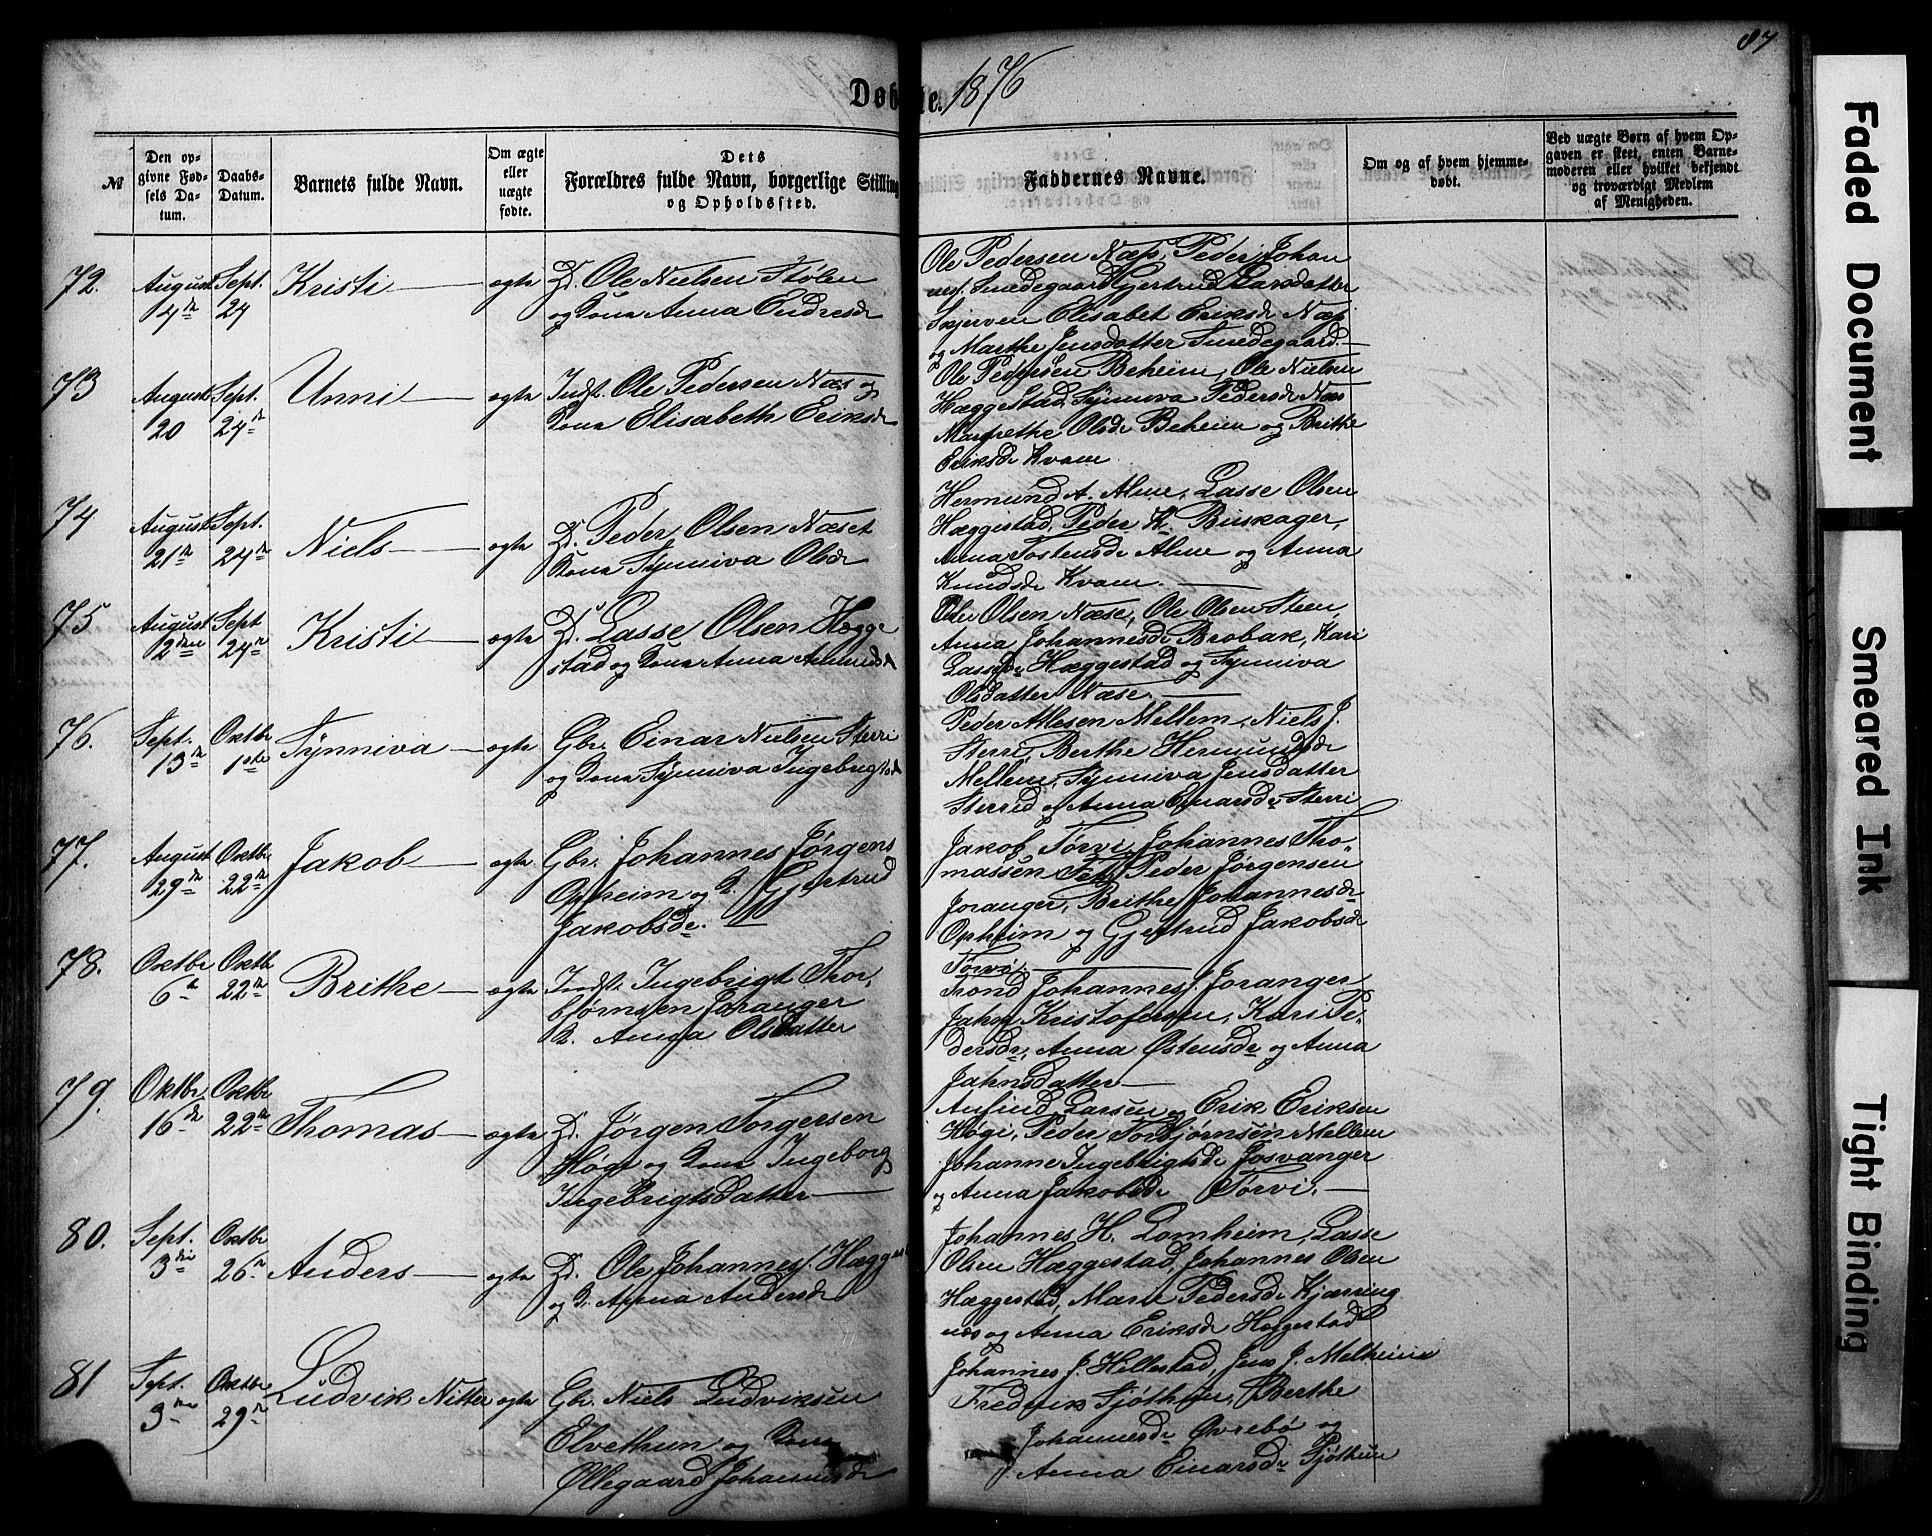 87
Døbte. 1876
№
Den opgivne Fødsels Datum.
Daabs-Datum.
Barnets fulde Navn.
Om ægte eller uægte fødte.
Dets Forældres fulde Navn, borgerlige Stilling og Opholdssted.
Faddernes Navne.
Om og af hvem hjemmedøbt.
Ved uægte Børn af hvem Opgaven er skeet, enten Barnemoderen eller hvilket bekjendt og troværdigt Medlem af Menigheden.
72. August Sept. Kristi ægte Gd. Ole Nielsen Stølen
14de 24 og Kona Anna Endresdr
Ole Pedersen Næss, Peder Johan
nes. Smedegaard Gjertrud Larsdatter
Skjerven Elisabet Eriksdr Næss
og Marthe Jensdatter Smedegaard.
73 August Sept. Unni ægte Indst. Ole Pedersen Næs og
20 24de Kona Elisabeth Eriksdr
Ole Pedersen Beheim, Ole Nielsen
Hæggestad, Synniva Pedersdr Næs
Margrethe Olsdr Beheim og Brithe
Eriksdr Kvam
74 August Sept. Niels ægte Gd. Peder Olsen Næset
21de 24de Kona Synniva Olsdr
Hermund A. Alme, Lasse Olsen
Hæggestad, Peder K. Buskager,
Anna Tostensdr Alme og Anna
Knudsdr Kvam.
75 August Sept Kristi ægte Gd. Lasse Olsen Hægge
2den 24de stad og Kona Anna
Peder Olsen Næse, Ole Olsen Steen
Anna Johannesdr Brobak, Kari
Lassedr Hæggestad og Synniva
Olsdatter Næse.
76. Sept. Oktbr Synniva ægte Gbr. Einar Nielsen Sterri
13de 1ste og Kona Synniva Ingebrigtsdr
Peder Atlesen Mellem, Niels J.
Sterri, Berthe Hermundsdr
Mellem, Synniva Jensdatter
Sterri og Anna Einarsdr Sterri
77. August Oktbr Jakob ægte Gbr. Johannes Jørgens
29de 22de Opheim og K. Gjertrud
Jakobsdr.
Jakob Tørvi, Johannes Tho-
massen Fet, Peder Jørgensen
Joranger, Brithe Johannesdr
Opheim og Gjertrud Jakobsdr
Tørvi.
78. Oktbr Oktbr Brithe ægte Indst. Ingebrigt Thor
6te 22de bjørnsen Joranger
K. Anna Olsdatter
Trond Johannes. Joranger
Jahn Kristofersen, Kari Pe-
dersdr, Anna Østensdr og Anna
Jahnsdatter
79. Oktbr. Oktbr Thomas ægte Gd. Jørgen Torgersen
16de 22de Høgi og Kona Ingeborg
Ingebrigtsdatter
Anfind Larsen og Erik Eriksen
Høgi, Peder Torbjørnsen Mellem
Johanne Ingebrigtsdr Josvanger
og Anna Jakobsdr Tørvi.
80. Sept. Oktbr Anders ægte Gd. Ole Johannes. Hægges
3die 26de og K. Anna Andersdr
Johannes H. Lomheim, Lasse
Olsen Hæggestad, Johannes Olsen
Hæggestad, Mari Pedersdr Kjærring
næs og Anna Eriksdr Hæggestad
81 Sept. Oktbr Ludvik Nitter ægte Gbr. Niels Ludviksen
3die 29de Elvethun og Kona
Ollegaard Johannesdr
Johannes J. Hillestad, Jens J. Melheim
Fredrik Sjøthun, Berthe
Johannesdr Øvrebø og
Anna Einarsdr Sjøthun
Faded Document
Smeared Ink
Tight Binding